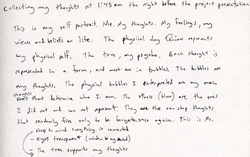 Collecting my thoughts at 1:45 am the night before the project presentation
This is my self portrait. Me. My thoughts. My feelings, my
views and beliefs on life. The physical represents
my physical self. The tree, my psyche. Each thought is
represented in a form, and most are in bubbles. The bubbles are
my thoughts. The physical bubbles I on my main
thoughts that determine who I am. The others (blow) are the ones
I did not and can not represent. They are the random thoughts
that randomly fire only to be forgotten once again. This is me.
Keep in mind everything is connected
Eyes transparent
The tree supports my thoughts